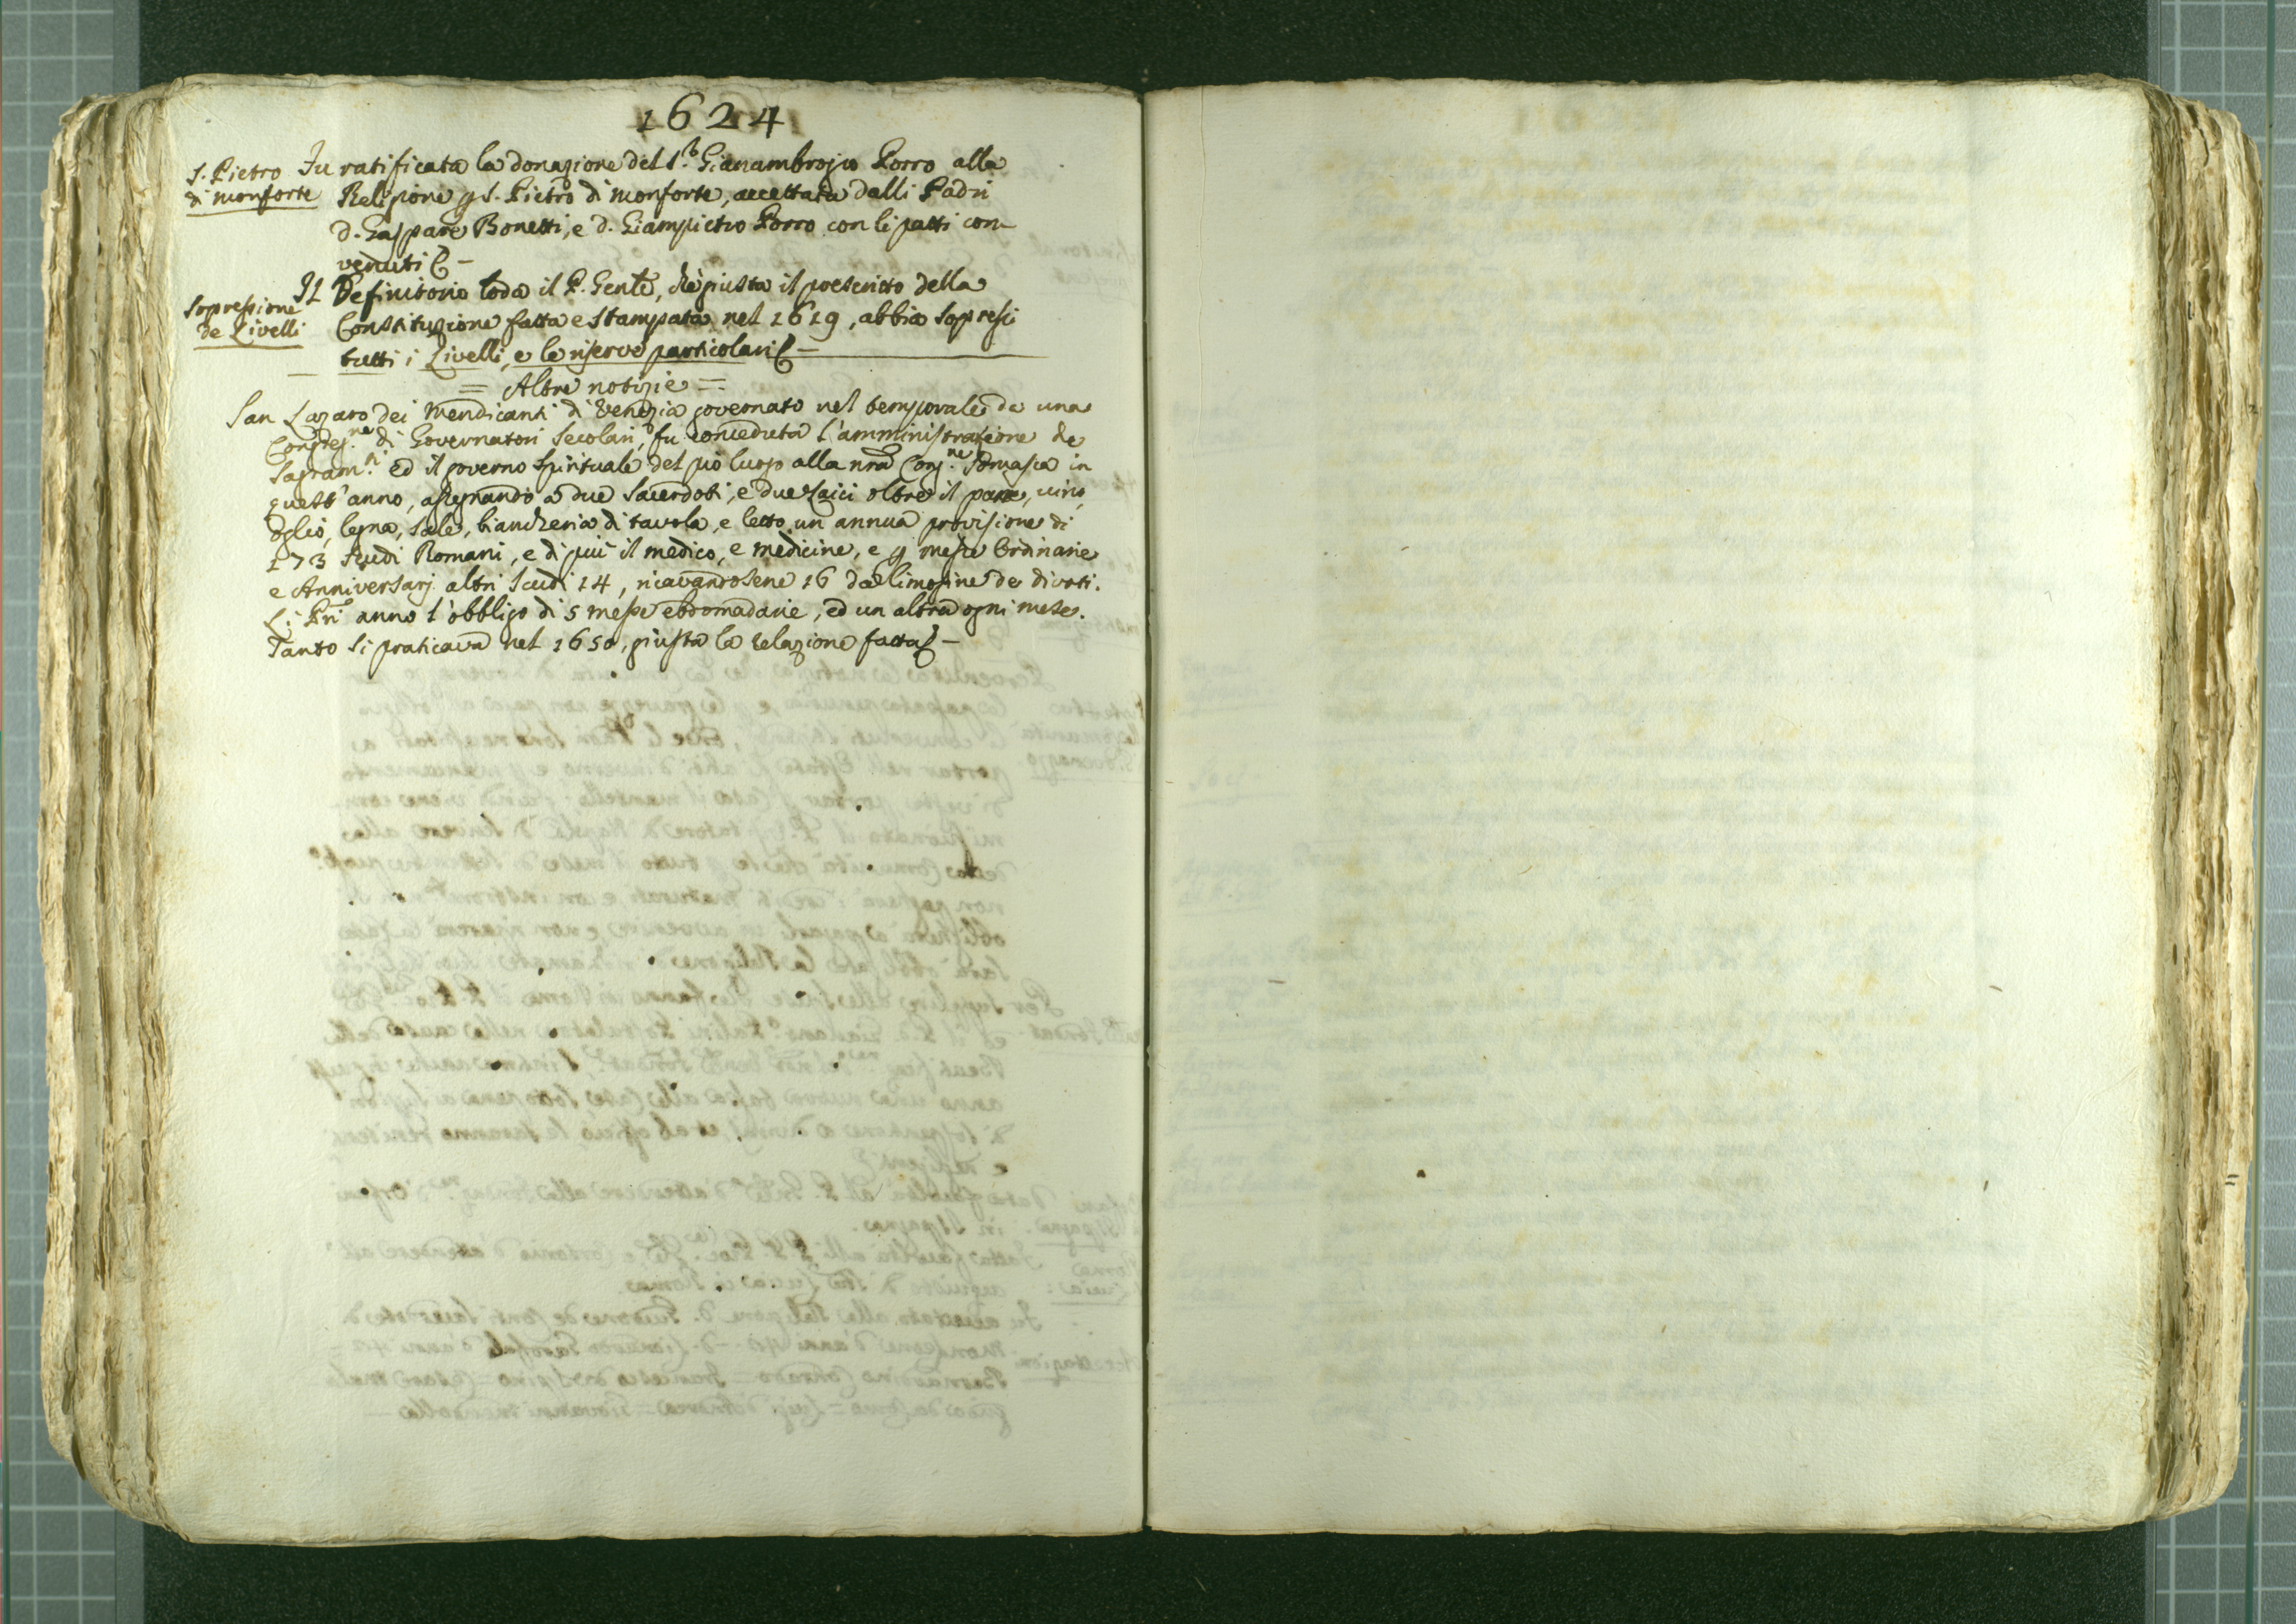 1624
S. Pietro
di Monforte
Fu ratificata la donazione del S.r Gianambrojio Porro alla
Religione p S. Pietro di Monforte, accettata dalli Padri
D. Gaspare Bonetti, e D. Giampietro Porro con li patti con-
venuti &-
Sopressione
de Livelli
Il Definitorio loda il P. Gen̄le, che giusta il prescritto della
Constituzione fatta e stampata nel 1619, abbia sopressi
tutti i Livelli, e le riserve particolari &-
= Altre notizie =
San Lazaro dei Mendicanti di Venezia governato nel temporale da una
Congreg.ne di Governatori Secolari, fu conceduta l'amministrazione de
Sagram.ti ed il governo Spirituale del pio luogo alla nrā Cong.ne Somasca in
quest'anno, assegnando a due Sacerdoti, e due Laici oltre il pane, vino,
oglio, legna, sale, biancheria di tavola, e letto un annua provisione di
173 Scudi Romani, e di più il medico, e medicine, e p messe Ordinarie
e Anniversarj altri Scudi 14, ricavandosene 16 da limosine de divoti.
Li Pri anno l'obbligo di 5 messe ebdomadarie, ed un altra ogni mese.
Tanto si praticava nel 1650, giusta la relazione fatta &-